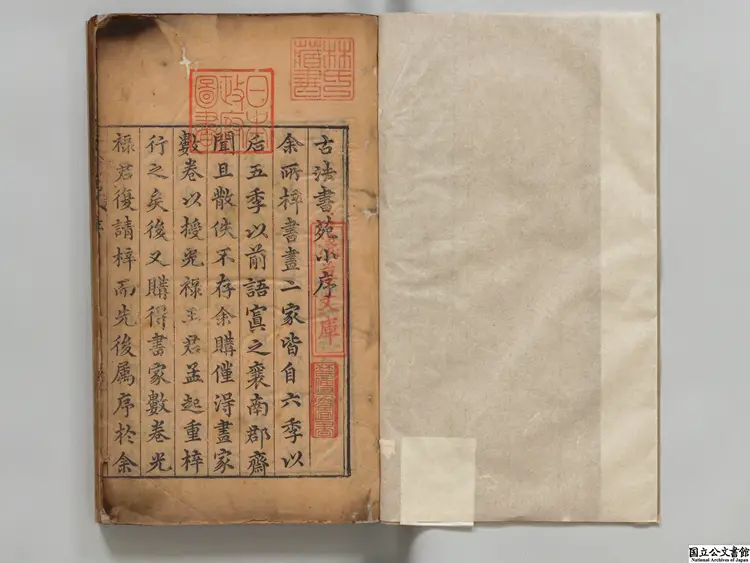 古法書苑小序
余所梓書畫二家皆自六季以
后五季以前語寘之襄南郡齋
聞且散佚不存余購僅淂畫家
數卷以授光祿王君孟起重梓
行之矣後又購得書家數卷光
祿君復請梓而先後属序於余
林氏藏書
日本政府圖書
淺草文庫
国立公文書館
National Archives of Japan